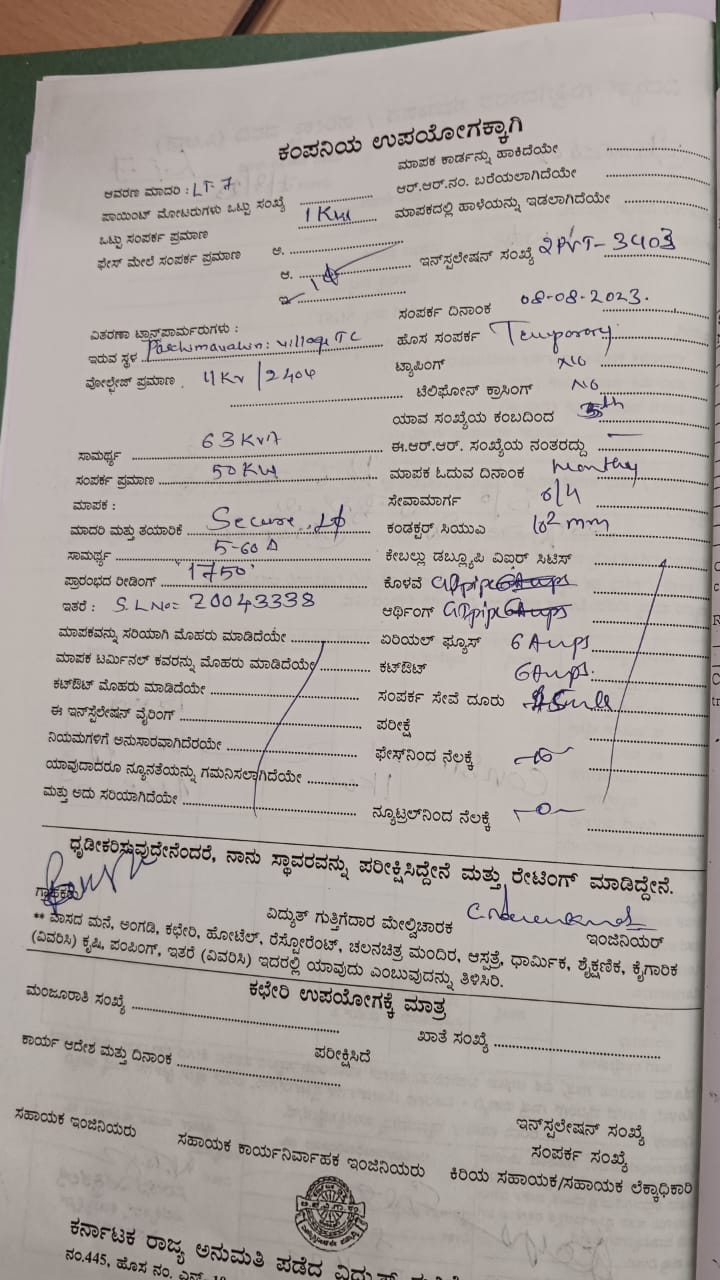 ಕಂಪನಿಯ ಉಪಯೋಗಕ್ಕಾಗಿ
ಆವರಣ ಮಾದರಿ : LT-7
ಮಾಪಕ ಕಾರ್ಡನ್ನು ಹಾಕಿದೆಯೇ
ಪಾಯಿಂಟ್ ಮೋಟರುಗಳು ಒಟ್ಟು ಸಂಖ್ಯೆ
ಆರ್.ಆರ್.ನಂ. ಬರೆಯಲಾಗಿದೆಯೇ
ಒಟ್ಟು ಸಂಪರ್ಕ ಪ್ರಮಾಣ 1 KW
ಮಾಪಕದಲ್ಲಿ ಹಾಳೆಯನ್ನು ಇಡಲಾಗಿದೆಯೇ
ಫೇಸ್ ಮೇಲೆ ಸಂಪರ್ಕ ಪ್ರಮಾಣ ಅ.
ಇನ್‌ಸ್ಪಲೇಷನ್ ಸಂಖ್ಯೆ 2PVT-3403
ಆ.
ಇ. 1ϕ
ವಿತರಣಾ ಟ್ರಾನ್ಸ್‌ಫಾರ್ಮರುಗಳು :
ಸಂಪರ್ಕ ದಿನಾಂಕ 08-08-2023.
ಇರುವ ಸ್ಥಳ village TC
ಹೊಸ ಸಂಪರ್ಕ Temporory
ವೋಲ್ಟೇಜ್ ಪ್ರಮಾಣ 11 KV / 240V
ಟ್ಯಾಪಿಂಗ್ NO
ಟೆಲಿಫೋನ್ ಕ್ರಾಸಿಂಗ್ NO
ಯಾವ ಸಂಖ್ಯೆಯ ಕಂಬದಿಂದ
ಸಾಮರ್ಥ್ಯ 63 KVA
ಈ.ಆರ್.ಆರ್. ಸಂಖ್ಯೆಯ ನಂತರದ್ದು —
ಸಂಪರ್ಕ ಪ್ರಮಾಣ 50 KW
ಮಾಪಕ ಓದುವ ದಿನಾಂಕ Monthy
ಮಾಪಕ :
ಸೇವಾಮಾರ್ಗ O/H
ಮಾದರಿ ಮತ್ತು ತಯಾರಿಕೆ Secure 1ϕ
ಕಂಡಕ್ಟರ್ ಸಿಯುಎ 10² mm
ಸಾಮರ್ಥ್ಯ 5-60 A
ಕೇಬಲ್ಲು ಡಬ್ಲ್ಯೂಪಿ ವಿಐರ್ ಸಿಟಿಸ್
ಪ್ರಾರಂಭದ ರೀಡಿಂಗ್ '1750'
ಕೊಳವೆ GI pipe
ಇತರೆ : S.L No= 20043338
ಆರ್ಥಿಂಗ್ GI pipe
ಮಾಪಕವನ್ನು ಸರಿಯಾಗಿ ಮೊಹರು ಮಾಡಿದೆಯೇ
ಏರಿಯಲ್ ಫ್ಯೂಸ್ 6 Amps
ಮಾಪಕ ಟರ್ಮಿನಲ್ ಕವರನ್ನು ಮೊಹರು ಮಾಡಿದೆಯೇ
ಕಟ್‌ಔಟ್ 6 Amps.
ಕಟ್‌ಔಟ್ ಮೊಹರು ಮಾಡಿದೆಯೇ
ಸಂಪರ್ಕ ಸೇವೆ ದೂರು
ಈ ಇನ್‌ಸ್ಪಲೇಷನ್ ವೈರಿಂಗ್
ಪರೀಕ್ಷೆ
ನಿಯಮಗಳಿಗೆ ಅನುಸಾರವಾಗಿದೆರಯೇ
ಫೇಸ್‌ನಿಂದ ನೆಲಕ್ಕೆ
ಯಾವುದಾದರೂ ನ್ಯೂನತೆಯನ್ನು ಗಮನಿಸಲಾಗಿದೆಯೇ
ಮತ್ತು ಅದು ಸರಿಯಾಗಿದೆಯೇ
ನ್ಯೂಟ್ರಲ್‌ನಿಂದ ನೆಲಕ್ಕೆ —0—
ಧೃಡೀಕರಿಸುವುದೇನೆಂದರೆ, ನಾನು ಸ್ಥಾವರವನ್ನು ಪರೀಕ್ಷಿಸಿದ್ದೇನೆ ಮತ್ತು ರೇಟಿಂಗ್ ಮಾಡಿದ್ದೇನೆ.
ಗ್ರಾಹಕರು
ವಿದ್ಯುತ್ ಗುತ್ತಿಗೆದಾರ ಮೇಲ್ವಿಚಾರಕ
ಇಂಜಿನಿಯರ್
** ವಾಸದ ಮನೆ, ಅಂಗಡಿ, ಕಛೇರಿ, ಹೋಟೆಲ್, ರೆಸ್ಟೋರೆಂಟ್, ಚಲನಚಿತ್ರ ಮಂದಿರ, ಆಸ್ಪತ್ರೆ, ಧಾರ್ಮಿಕ, ಶೈಕ್ಷಣಿಕ, ಕೈಗಾರಿಕ
(ವಿವರಿಸಿ) ಕೃಷಿ, ಪಂಪಿಂಗ್, ಇತರೆ (ವಿವರಿಸಿ) ಇದರಲ್ಲಿ ಯಾವುದು ಎಂಬುವುದನ್ನು ತಿಳಿಸಿರಿ.
ಕಛೇರಿ ಉಪಯೋಗಕ್ಕೆ ಮಾತ್ರ
ಮಂಜೂರಾತಿ ಸಂಖ್ಯೆ
ಖಾತೆ ಸಂಖ್ಯೆ
ಕಾರ್ಯ ಆದೇಶ ಮತ್ತು ದಿನಾಂಕ
ಪರೀಕ್ಷಿಸಿದೆ
ಇನ್‌ಸ್ಪಲೇಷನ್ ಸಂಖ್ಯೆ
ಸಂಪರ್ಕ ಸಂಖ್ಯೆ
ಸಹಾಯಕ ಇಂಜಿನಿಯರು
ಸಹಾಯಕ ಕಾರ್ಯನಿರ್ವಾಹಕ ಇಂಜಿನಿಯರು
ಕಿರಿಯ ಸಹಾಯಕ/ಸಹಾಯಕ ಲೆಕ್ಕಾಧಿಕಾರಿ
ಕರ್ನಾಟಕ ರಾಜ್ಯ ಅನುಮತಿ ಪಡೆದ ವಿದ್ಯುತ್
ನಂ.445, ಹೊಸ ನಂ.